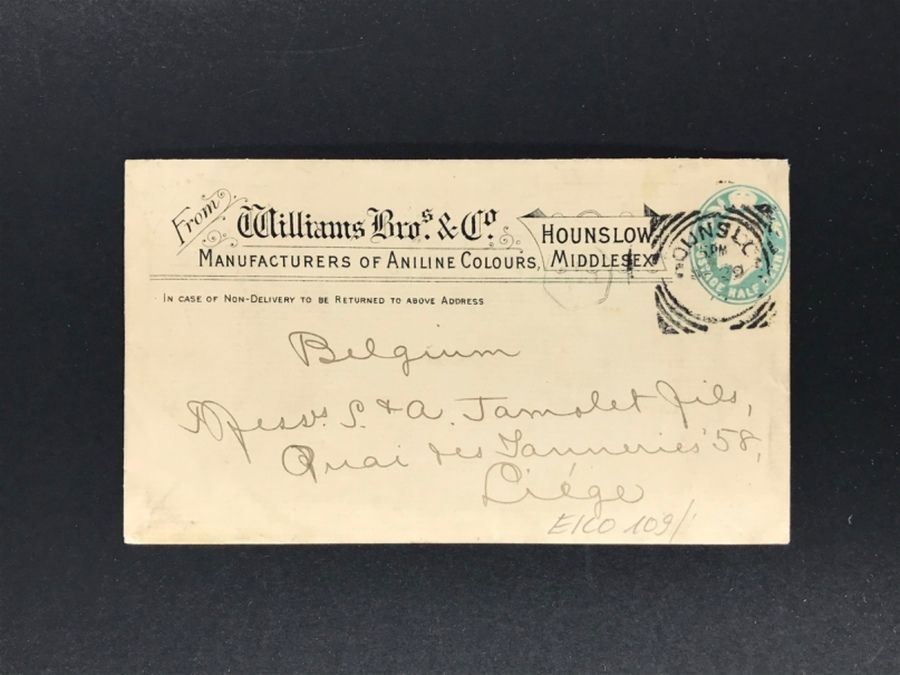 From
Williams Bros. & Co.
Manufacturers of Aniline Colours,
Hounslow
Middlesex
In case of Non-Delivery to be Returned to above Address
HOUNSLO
5 PM
POSTAGE HALF
Belgium
Messrs S. & A. Jamolet fils,
Quai des Tanneries 58,
Liége
E1CO 109/